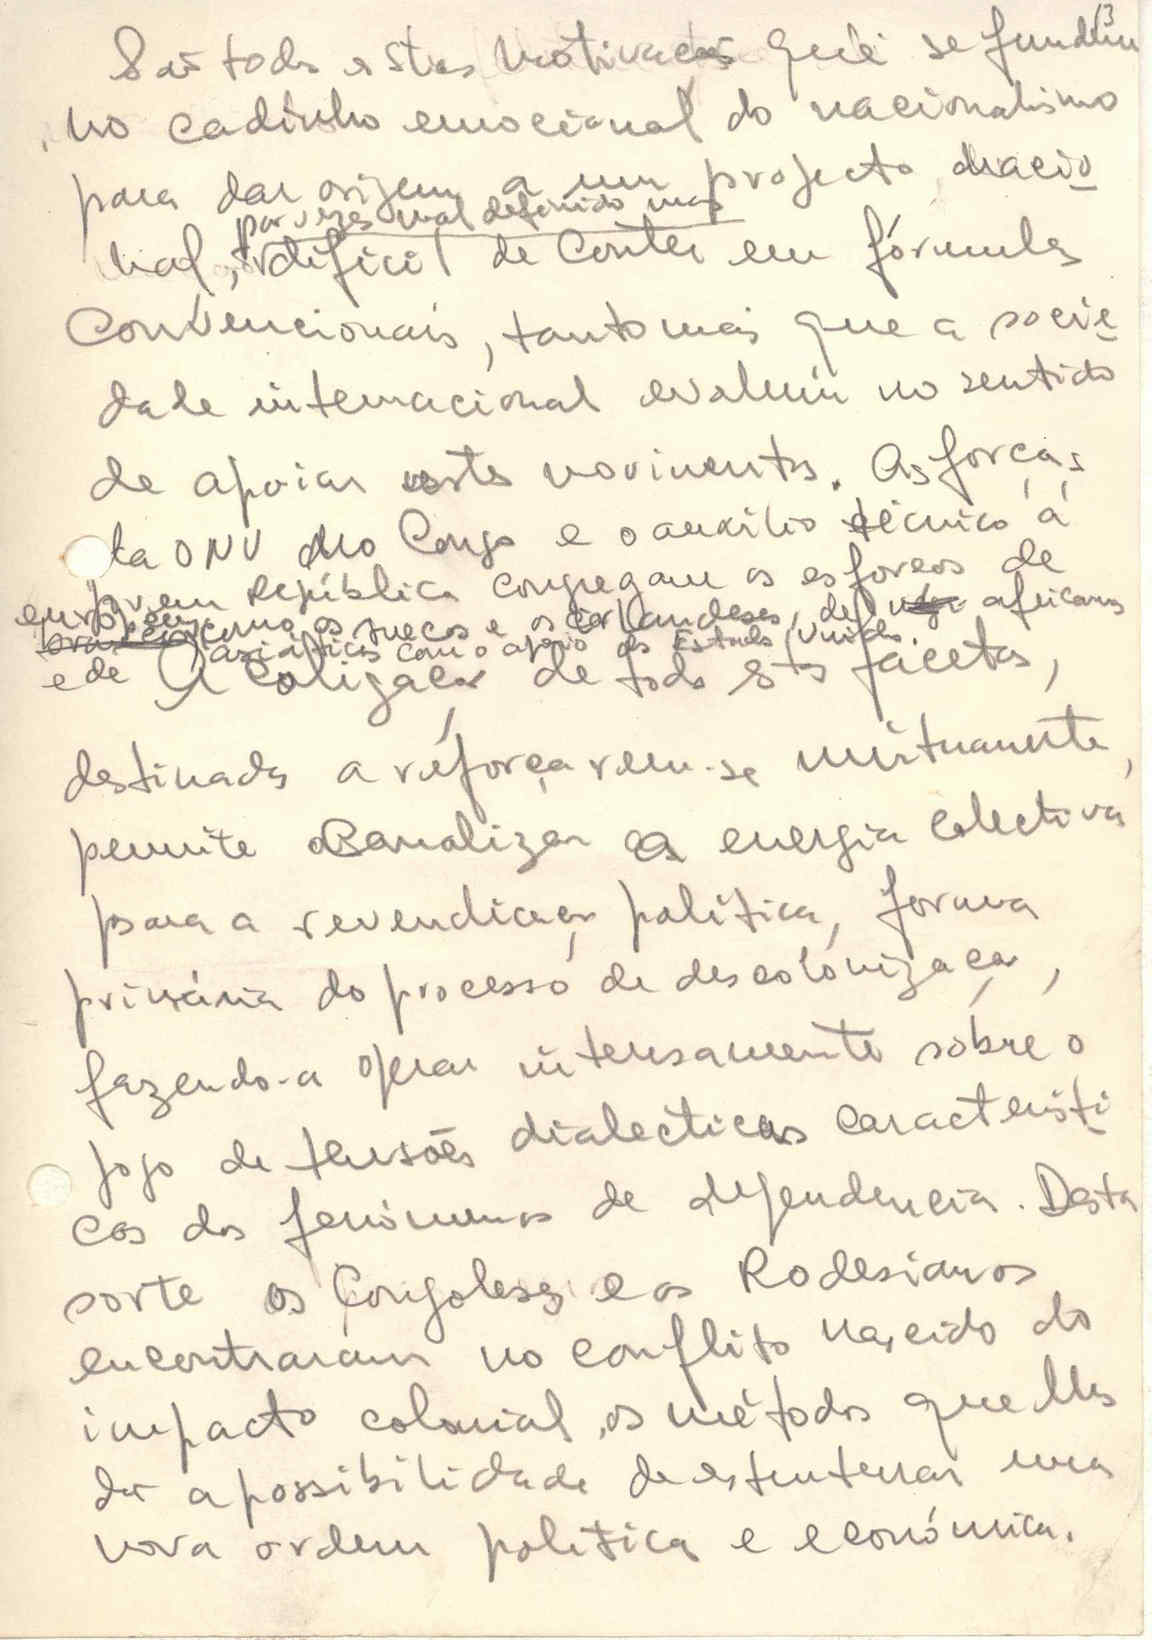 13
São todas estas motivações que se fundem
no cadinho emocional do nacionalismo
para dar origem a um projecto nacio
por vezes mal definido mas
nal, difícil de conter em fórmulas
convencionais, tanto mais que a socie
dade internacional evoluiu no sentido
de apoiar estes movimentos. As forças
da ONU no Congo e o auxílio técnico à
jovem República congregam os esforços de
europeus, como os suecos e os irlandeses, de africanos
e de asiáticos com o apoio dos Estados Unidos.
A coligação de todas estas facetas,
destinadas a reforçarem-se mùtuamente,
permite canalizar a energia colectiva
para a revendicação política, forma
primária do processo de descolonização,
fazendo-a operar intensamente sôbre o
jogo de tensões dialecticas característi
cas dos fenómenos de dependência. Desta
sorte os Congoleses e os Rodesianos
encontraram no conflito nascido do
impacto colonial, os métodos que lhes
dão a possibilidade de estruturar uma
nova ordem política e económica.